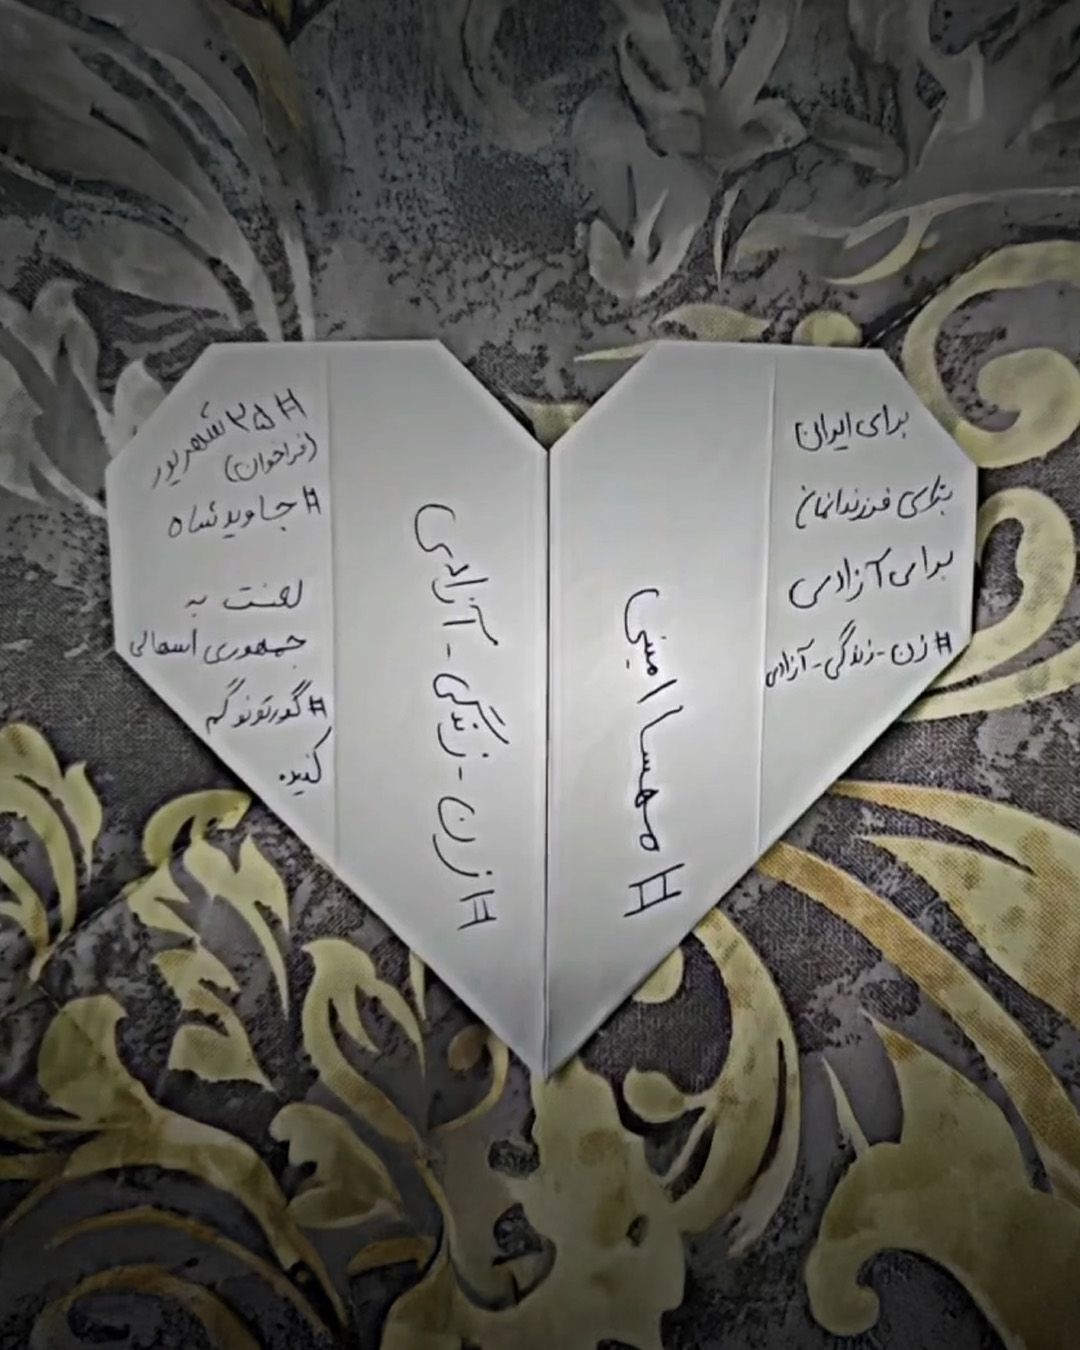 برای ایران
برای فرزندانمان
برای آزادی
#زن-زندگی-آزادی
#مهسا امینی
#زن-زندگی-آزادی
#۲۵ شهریور
(فراخوان)
#جاوید شاه
لعنت به
جمهوری اسمالی
#گورتونو گم
کنید.